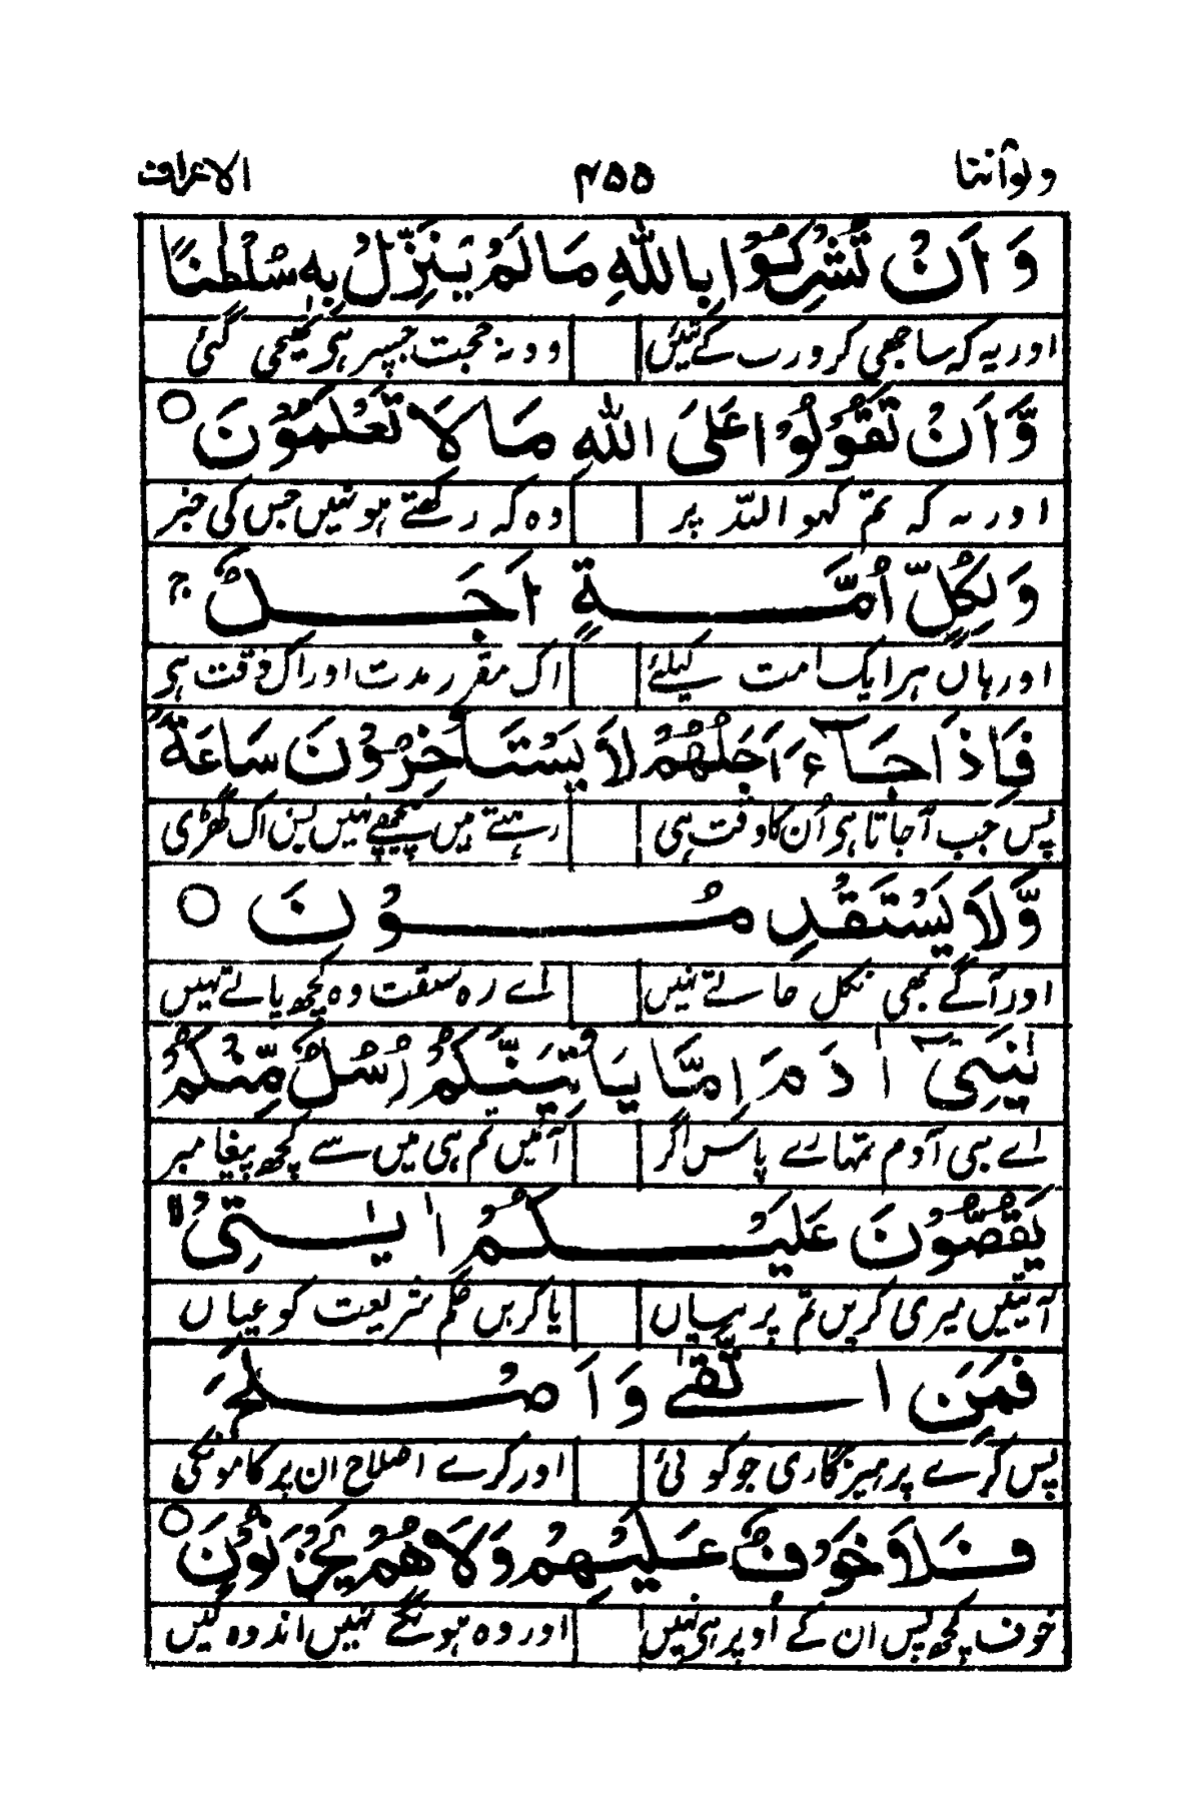 ولواننا ۴۵۵ الاعراف
وَ اَنْ تُشْرِكُوْا بِاللّٰهِ مَا لَمْ يُنَزِّلْ بِهٖ سُلْطٰنًا
اور یہ کہ ساجھی کرو رب کے تئیں وہ نہ حجت جسپر ہی بھیجی گئی
وَّ اَنْ تَقُوْلُوْا عَلَى اللّٰهِ مَا لَا تَعْلَمُوْنَ ○
اور یہ کہ تم کہو اللہ پر وہ کہ رکھتے ہو نہیں جس کی خبر
وَ لِكُلِّ اُمَّةٍ اَجَلٌ ۚ
اور ہاں ہر ایک امت کیلئے اک مقرر مدت اور اک وقت ہی
فَاِذَا جَآءَ اَجَلُهُمْ لَا يَسْتَاْخِرُوْنَ سَاعَةً
پس جب آجاتا ہی اُن کا وقت ہی رہتے ہیں پیچھے نہیں بس اک گھڑی
وَّ لَا يَسْتَقْدِمُوْنَ ○
اور آگے بھی نکل جاتے نہیں اے رہ سبقت وہ کچھ پاتے نہیں
يٰبَنِيْٓ اٰدَمَ اِمَّا يَاْتِيَنَّكُمْ رُسُلٌ مِّنْكُمْ
اے بنی آدم تمہارے پاس اگر آئیں تم ہی میں سے کچھ پیغامبر
يَقُصُّوْنَ عَلَيْكُمْ اٰيٰتِيْ ۙ
آیتیں میری کریں تم پر بیاں یا کریں حکم شریعت کو عیاں
فَمَنِ اتَّقٰى وَ اَصْلَحَ
پس کرے پرہیزگاری جو کوئی اور کرے اصلاح ان پر کامونکی
فَلَا خَوْفٌ عَلَيْهِمْ وَ لَا هُمْ يَحْزَنُوْنَ ○
خوف کچھ پس ان کے اوپر ہی نہیں اور وہ ہونگے نہیں اندوہ گیں